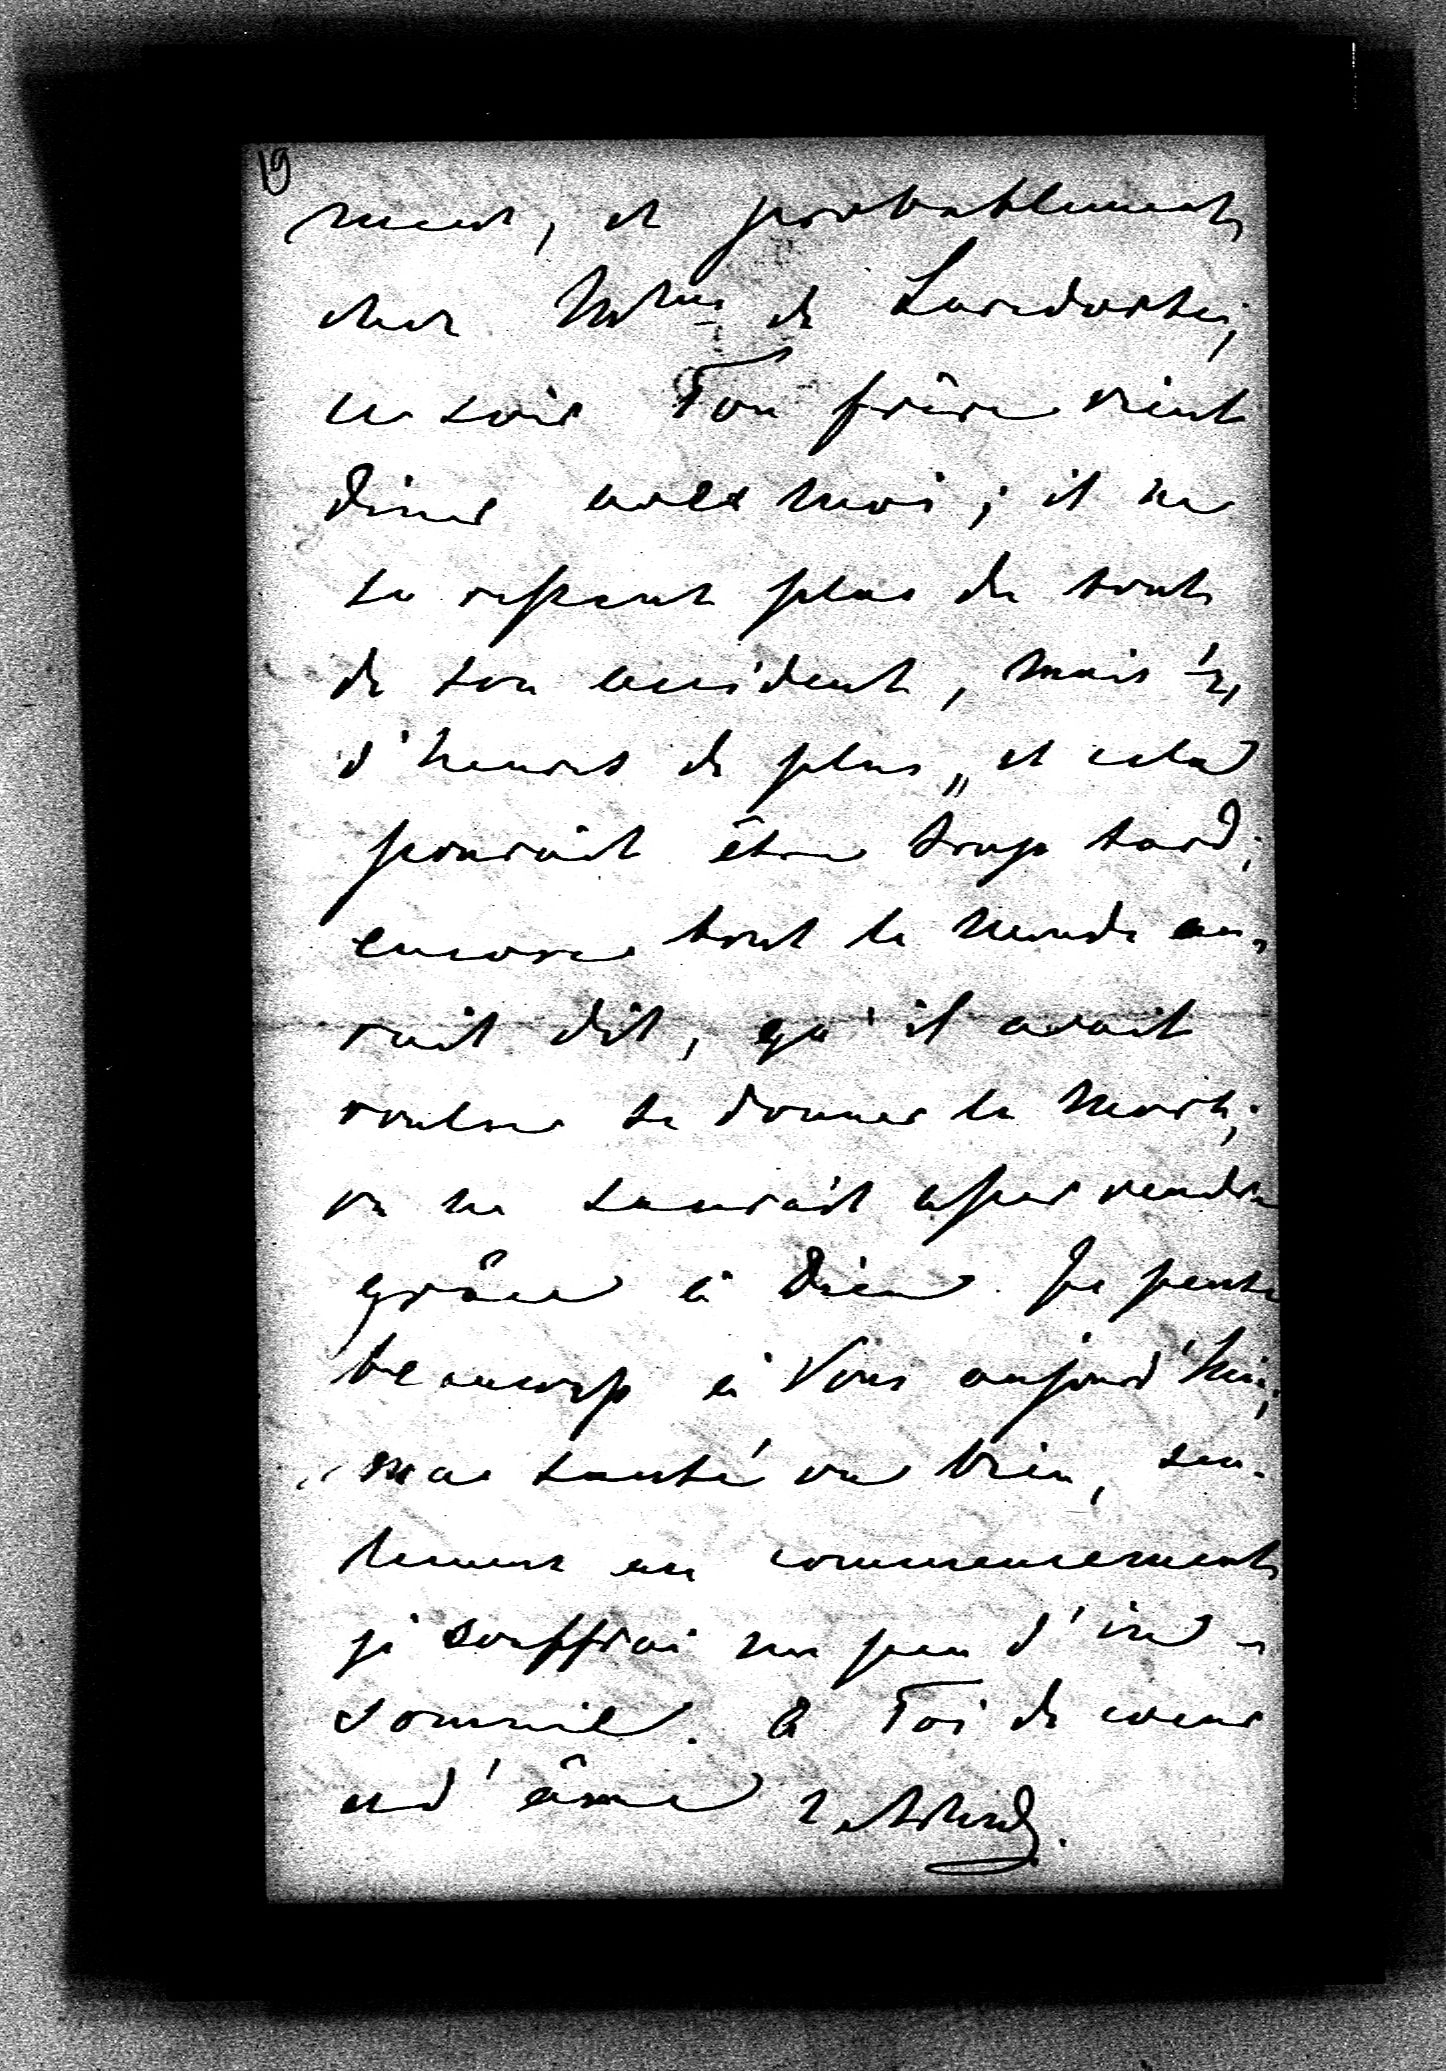 19
ment, et probablement
chez Mme de
ce soir Ton frère vient
diner avec moi ; il ne
se ressent plus du tout
de son accident, mais ½
d'heures de plus, et cela
pourait être trop tard;
encore tout le monde au-
rait dit, qu'il avait
voulue se donner la mort;
on ne saurait assez rendre
grâce à Dieu. Je pense
beaucoup à Vous aujourd'hui;
ma santé va bien, seu-
lement au commencement
je souffrai un peu d'in-
somnie. à Toi de coeur
et d'âme